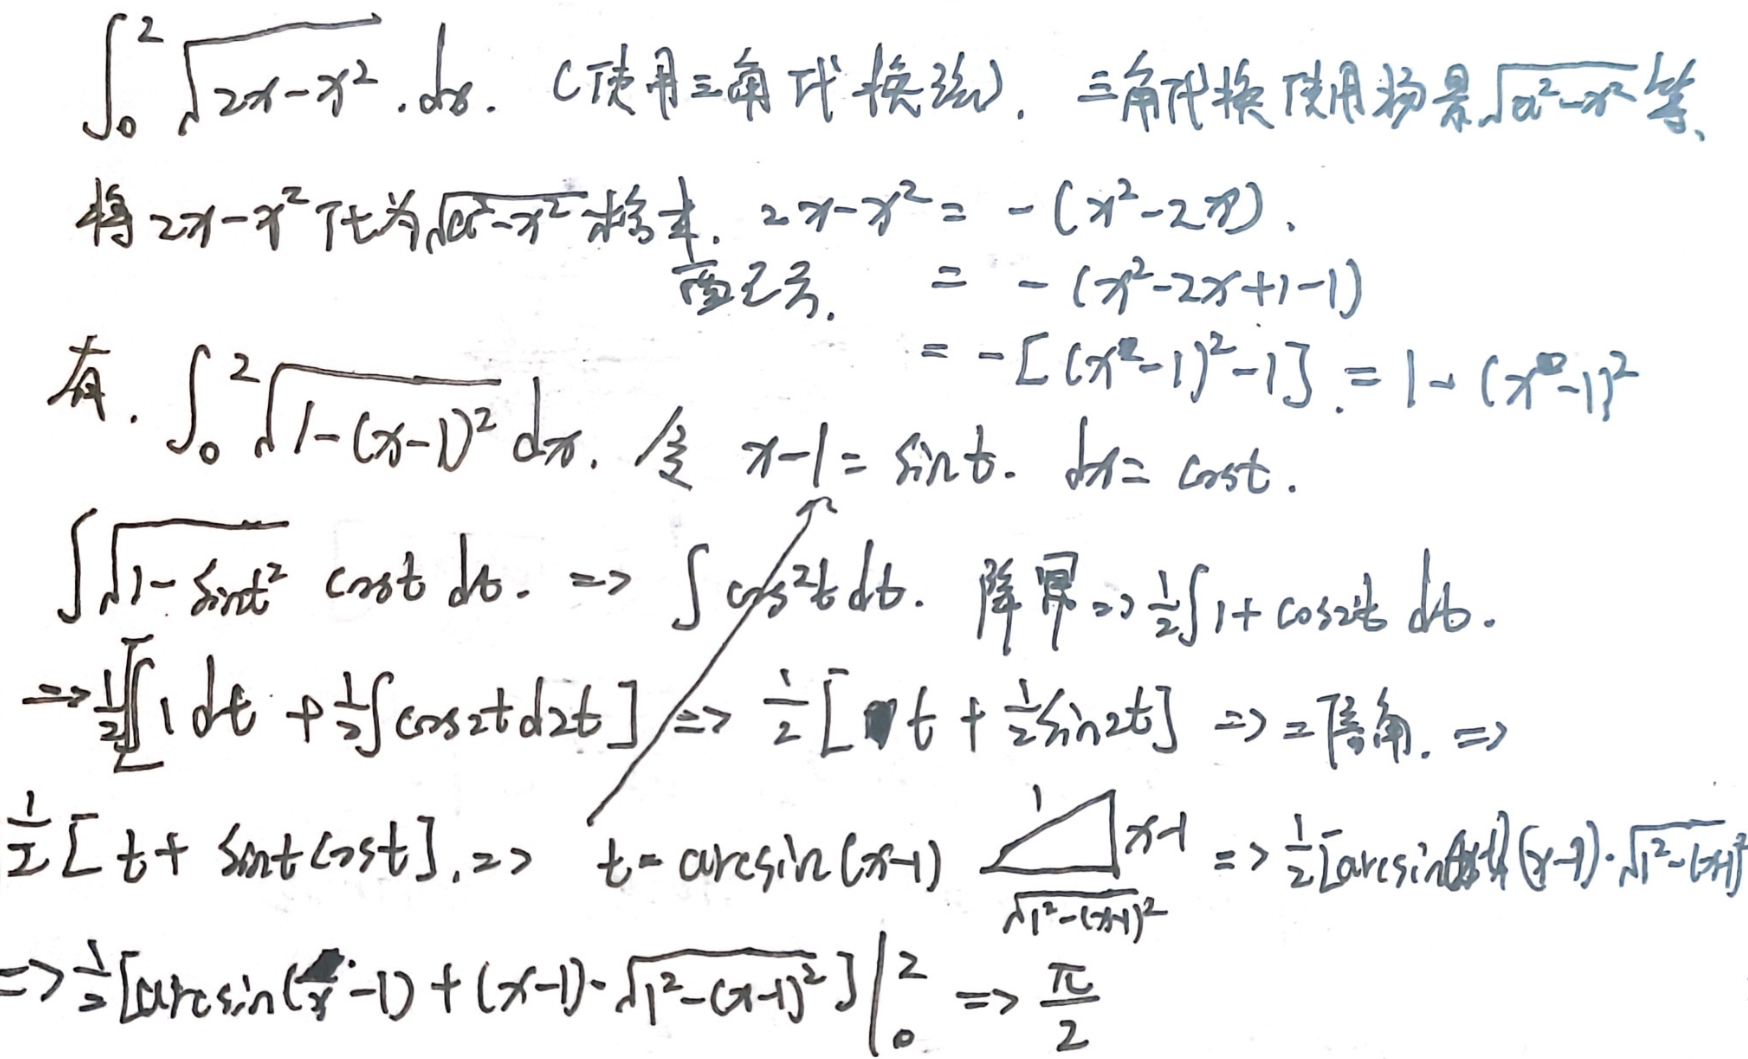 ∫₀² √(2x-x²) . dx. (使用三角代换法). 三角代换使用场景√(a²-x²)等、
将2x-x²代为√(a²-x²)格式. 2x-x² = -(x²-2x).
配方. = -(x²-2x+1-1)
= -[(x-1)²-1]. = 1-(x-1)²
有. ∫₀² √(1-(x-1)²) dx. 令 x-1 = sint. dx = cost.
∫√(1-sint²) cost dt. => ∫cos²t dt. 降幂 => ½∫1+cos2t dt.
=> ½[∫1 dt + ½∫cos2t d2t] => ½[t + ½sin2t] => 二倍角. =>
½[t + sint cost]. => t = arcsin(x-1) 1 x-1 √(1²-(x-1)²) => ½[arcsin(x-1)(x-1)·√(1²-(x-1)²)
=> ½[arcsin(x-1) + (x-1)·√(1²-(x-1)²)]|₀² => π/2